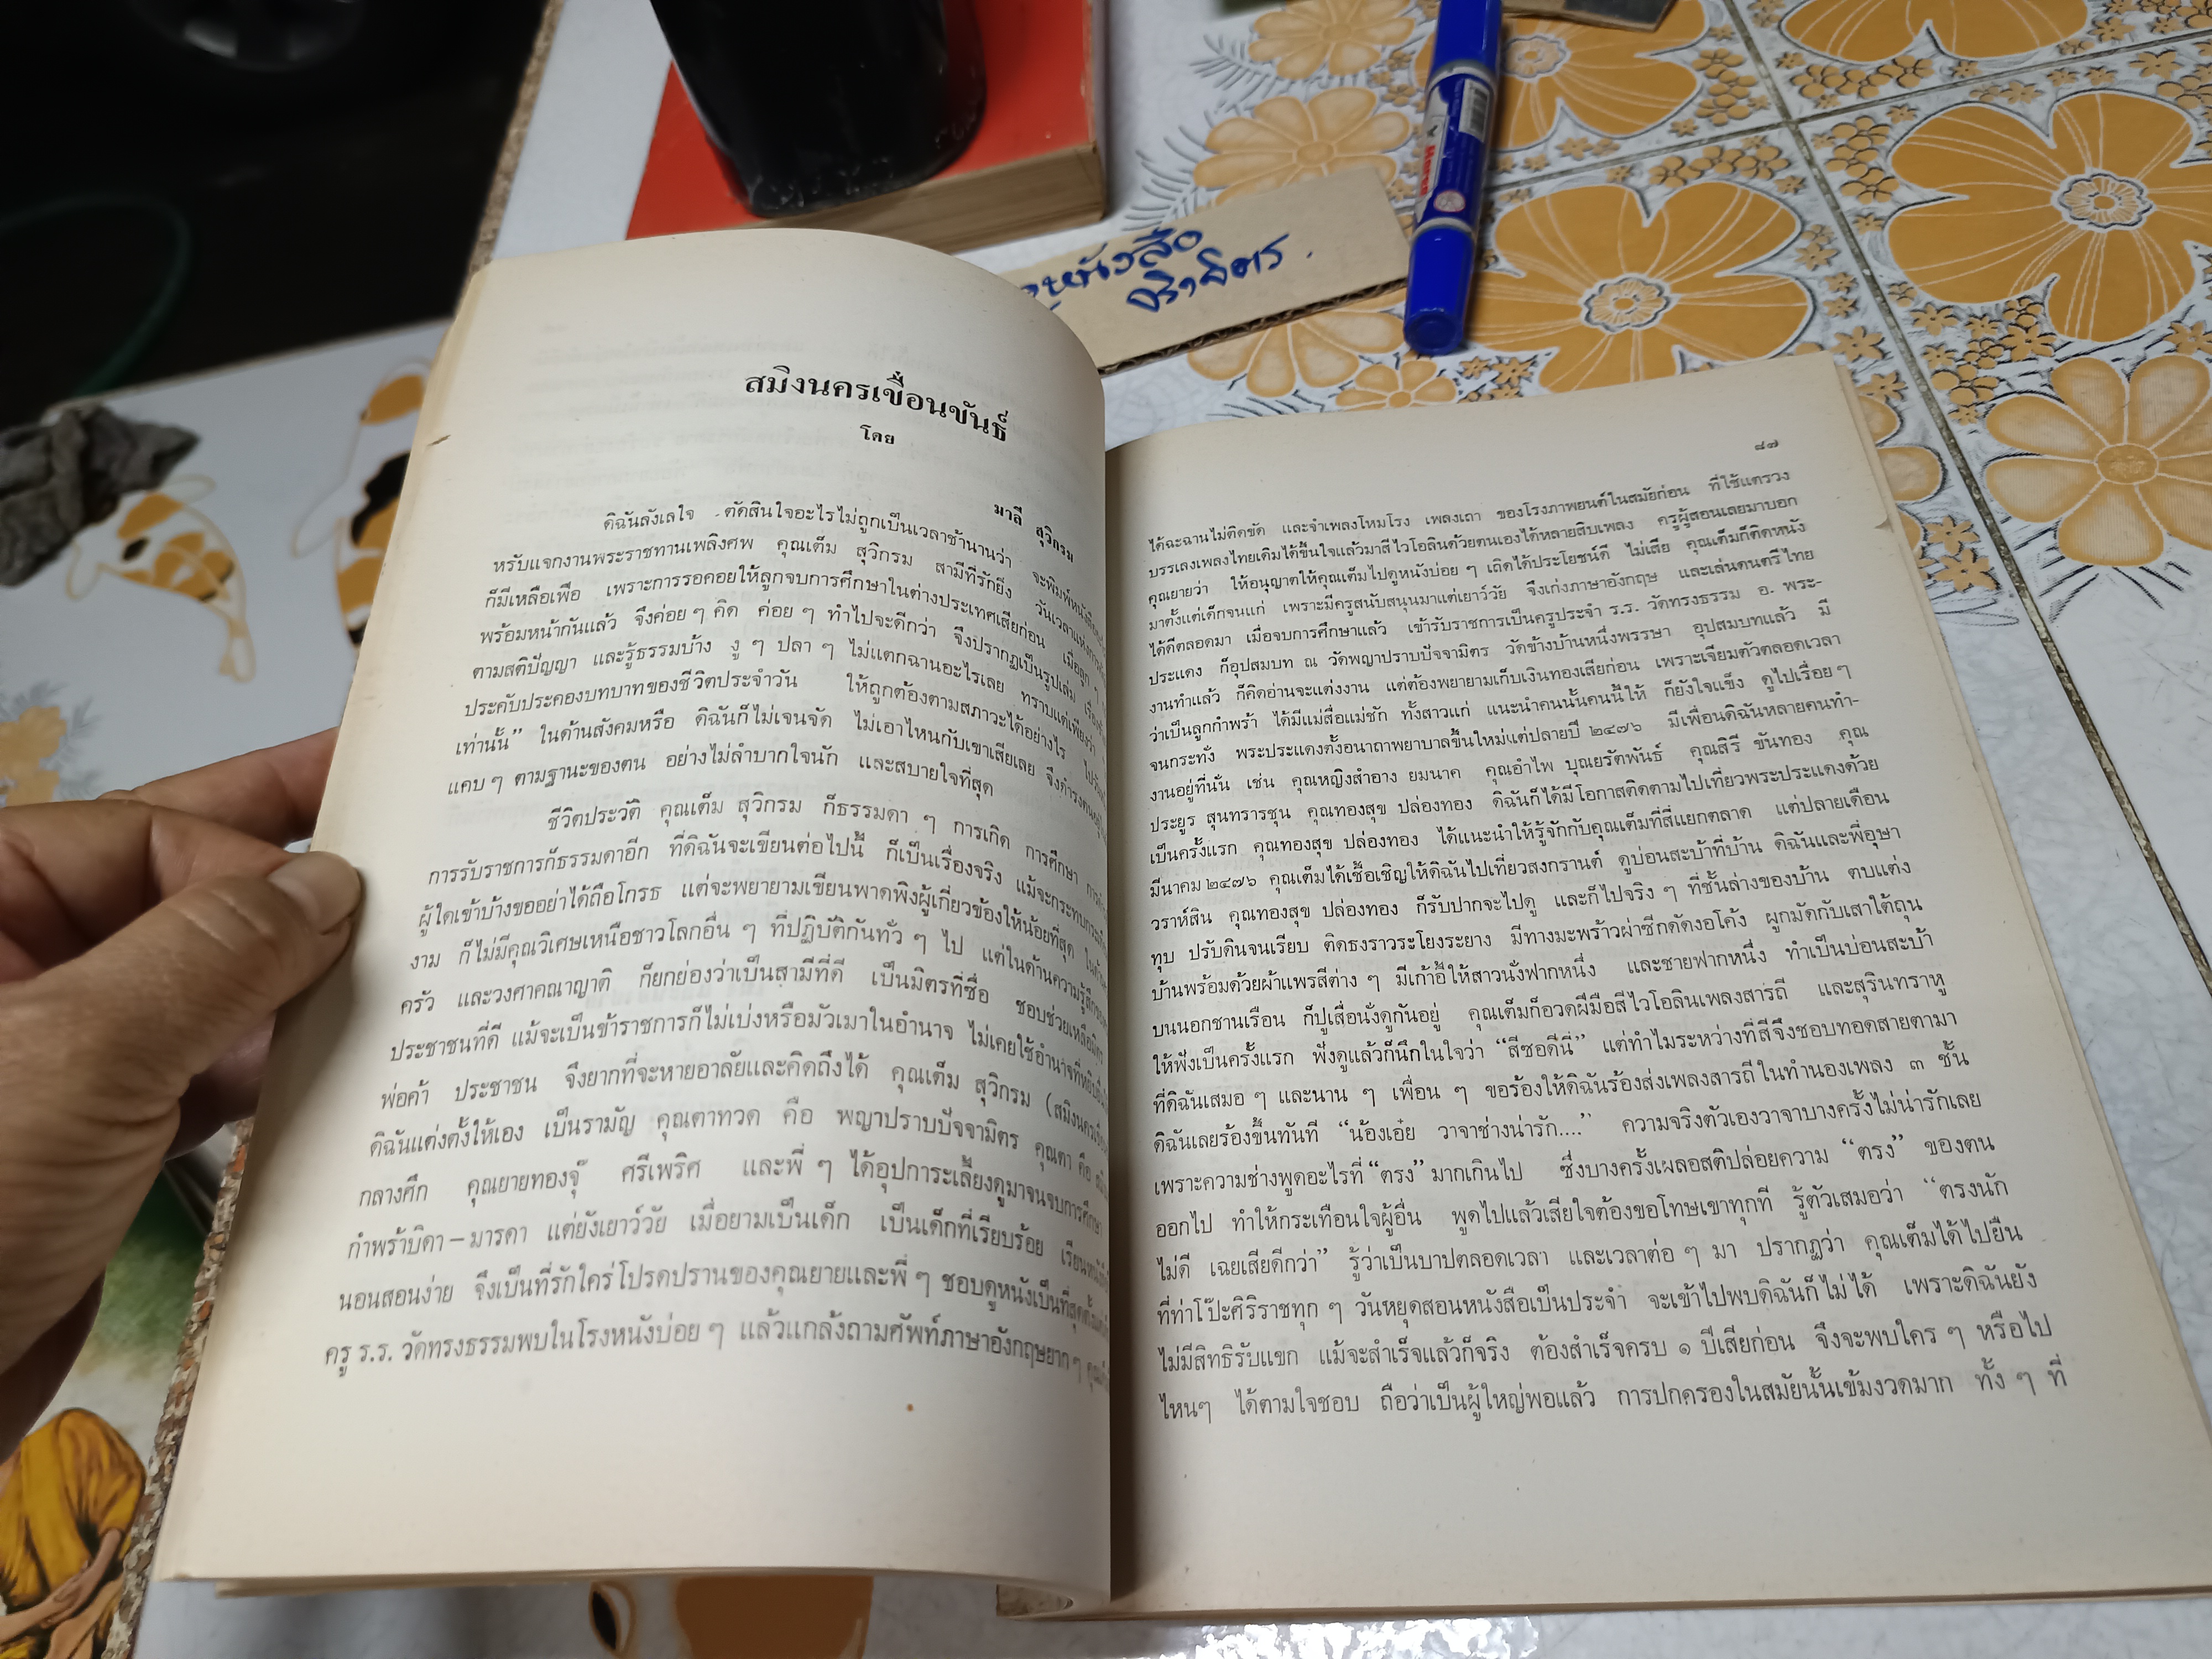 หนังสือ
สมิงนครเขื่อนขันธ์
โดย
มาลี สุวิกรม
ดิฉันลังเลใจ ตัดสินใจอะไรไม่ถูกเป็นเวลาช้านานว่า จะพิมพ์หนังสือ
หรับแจกงานพระราชทานเพลิงศพ คุณเต็ม สุวิกรม สามีที่รักยิ่ง วันเวลาแห่ง
ก็มีเหลือเฟือ เพราะการรอคอยให้ลูกจบการศึกษาในต่างประเทศเสียก่อน เมื่อลูก ๆ
พร้อมหน้ากันแล้ว จึงค่อย ๆ คิด ค่อย ๆ ทำไปจะดีกว่า จึงปรากฏเป็นรูปเล่ม
ตามสติปัญญา และรู้ธรรมบ้าง งู ๆ ปลา ๆ ไม่แตกฉานอะไรเลย ทราบแต่เพียงว่า
ประคับประคองบทบาทของชีวิตประจำวัน ให้ถูกต้องตามสภาวะได้อย่างไร
เท่านั้น” ในด้านสังคมหรือ ดิฉันก็ไม่เจนจัด ไม่เอาไหนกับเขาเสียเลย จึงดำรงตน
แคบ ๆ ตามฐานะของตน อย่างไม่ลำบากใจนัก และสบายใจที่สุด
ชีวิตประวัติ คุณเต็ม สุวิกรม ก็ธรรมดา ๆ การเกิด การศึกษา
การรับราชการก็ธรรมดาอีก ที่ดิฉันจะเขียนต่อไปนี้ ก็เป็นเรื่องจริง แม้จะกระทบกระเทือน
ผู้ใดเข้าบ้างขออย่าได้ถือโกรธ แต่จะพยายามเขียนพาดพิงผู้เกี่ยวข้องให้น้อยที่สุด
งาม ก็ไม่มีคุณวิเศษเหนือชาวโลกอื่น ๆ ที่ปฏิบัติกันทั่ว ๆ ไป แต่ในด้านความรู้สึกของ
ครัว และวงศาคณาญาติ ก็ยกย่องว่าเป็นสามีที่ดี เป็นมิตรที่ซื่อ ชอบช่วยเหลือ
ประชาชนที่ดี แม้จะเป็นข้าราชการก็ไม่เบ่งหรือมัวเมาในอำนาจ ไม่เคยใช้อำนาจ
พ่อค้า ประชาชน จึงยากที่จะหายอาลัยและคิดถึงได้ คุณเต็ม สุวิกรม (สมิงนคร
ดิฉันแต่งตั้งให้เอง เป็นรามัญ คุณตาทวด คือ พญาปราบปัจจามิตร คุณตา คือ
กลางศึก คุณยายทองจุ๊ ศรีเพริศ และพี่ ๆ ได้อุปการะเลี้ยงดูมาจนจบการศึกษา
กำพร้าบิดา – มารดา แต่ยังเยาว์วัย เมื่อยามเป็นเด็ก เป็นเด็กที่เรียบร้อย
นอนสอนง่าย จึงเป็นที่รักใคร่โปรดปรานของคุณยายและพี่ ๆ ชอบดูหนังเป็นที่สุด
ครู ร.ร. วัดทรงธรรมพบในโรงหนังบ่อย ๆ แล้วแกล้งถามศัพท์ภาษาอังกฤษยาก ๆ
๘๗
ได้ฉะฉานไม่ติดขัด และจำเพลงโหมโรง เพลงเถา ของโรงภาพยนต์ในสมัยก่อน ที่ใช้แตรวง
บรรเลงเพลงไทยเดิมได้ขึ้นใจแล้วมาสีไวโอลินด้วยตนเองได้หลายสิบเพลง ครูผู้สอนเลยมาบอก
คุณยายว่า ให้อนุญาตให้คุณเต็มไปดูหนังบ่อย ๆ เถิดได้ประโยชน์ดี ไม่เสีย คุณเต็มก็ติดหนัง
มาตั้งแต่เด็กจนแก่ เพราะมีครูสนับสนุนมาแต่เยาว์วัย จึงเก่งภาษาอังกฤษ และเล่นดนตรีไทย
ได้ดีตลอดมา เมื่อจบการศึกษาแล้ว เข้ารับราชการเป็นครูประจำ ร.ร. วัดทรงธรรม อ. พระ-
ประแดง ก็อุปสมบท ณ วัดพญาปราบปัจจามิตร วัดข้างบ้านหนึ่งพรรษา อุปสมบทแล้ว มี
งานทำแล้ว ก็คิดอ่านจะแต่งงาน แต่ต้องพยายามเก็บเงินทองเสียก่อน เพราะเจียมตัวตลอดเวลา
ว่าเป็นลูกกำพร้า ได้มีแม่สื่อแม่ชัก ทั้งสาวแก่ แนะนำคนนั้นคนนี้ให้ ก็ยังใจแข็ง ดูไปเรื่อย ๆ
จนกระทั่ง พระประแดงตั้งอนาถาพยาบาลขึ้นใหม่แต่ปลายปี ๒๔๗๖ มีเพื่อนดิฉันหลายคนทำ-
งานอยู่ที่นั่น เช่น คุณหญิงสำอาง ยมนาค คุณอำไพ บุณยรัตพันธ์ คุณสิรี ขันทอง คุณ
ประยูร สุนทรารชุน คุณทองสุข ปล่องทอง ดิฉันก็ได้มีโอกาสติดตามไปเที่ยวพระประแดงด้วย
เป็นครั้งแรก คุณทองสุข ปล่องทอง ได้แนะนำให้รู้จักกับคุณเต็มที่สี่แยกตลาด แต่ปลายเดือน
มีนาคม ๒๔๗๖ คุณเต็มได้เชื้อเชิญให้ดิฉันไปเที่ยวสงกรานต์ ดูบ่อนสะบ้าที่บ้าน ดิฉันและพี่อุษา
วราห์สิน คุณทองสุข ปล่องทอง ก็รับปากจะไปดู และก็ไปจริง ๆ ที่ชั้นล่างของบ้าน ตบแต่ง
ทุบ ปรับดินจนเรียบ ติดธงราวระโยงระยาง มีทางมะพร้าวผ่าซีกดัดงอโค้ง ผูกมัดกับเสาใต้ถุน
บ้านพร้อมด้วยผ้าแพรสีต่าง ๆ มีเก้าอี้ให้สาวนั่งฟากหนึ่ง และชายฟากหนึ่ง ทำเป็นบ่อนสะบ้า
บนนอกชานเรือน ก็ปูเสื่อนั่งดูกันอยู่ คุณเต็มก็อวดฝีมือสีไวโอลินเพลงสารถี และสุรินทราหู
ให้ฟังเป็นครั้งแรก ฟังดูแล้วก็นึกในใจว่า “สีซอดีนี่” แต่ทำไมระหว่างที่สีจึงชอบทอดสายตามา
ที่ดิฉันเสมอ ๆ และนาน ๆ เพื่อน ๆ ขอร้องให้ดิฉันร้องส่งเพลงสารถีในทำนองเพลง ๓ ชั้น
ดิฉันเลยร้องขึ้นทันที “น้องเอ๋ย วาจาช่างน่ารัก....” ความจริงตัวเองวาจาบางครั้งไม่น่ารักเลย
เพราะความช่างพูดอะไรที่ “ตรง” มากเกินไป ซึ่งบางครั้งเผลอสติปล่อยความ “ตรง” ของตน
ออกไป ทำให้กระเทือนใจผู้อื่น พูดไปแล้วเสียใจต้องขอโทษเขาทุกที รู้ตัวเสมอว่า “ตรงนัก
ไม่ดี เฉยเสียดีกว่า” รู้ว่าเป็นบาปตลอดเวลา และเวลาต่อ ๆ มา ปรากฏว่า คุณเต็มได้ไปยืน
ที่ท่าโป๊ะศิริราชทุก ๆ วันหยุดสอนหนังสือเป็นประจำ จะเข้าไปพบดิฉันก็ไม่ได้ เพราะดิฉันยัง
ไม่มีสิทธิรับแขก แม้จะสำเร็จแล้วก็จริง ต้องสำเร็จครบ ๑ ปีเสียก่อน จึงจะพบใคร ๆ หรือไป
ไหนๆ ได้ตามใจชอบ ถือว่าเป็นผู้ใหญ่พอแล้ว การปกครองในสมัยนั้นเข้มงวดมาก ทั้ง ๆ ที่